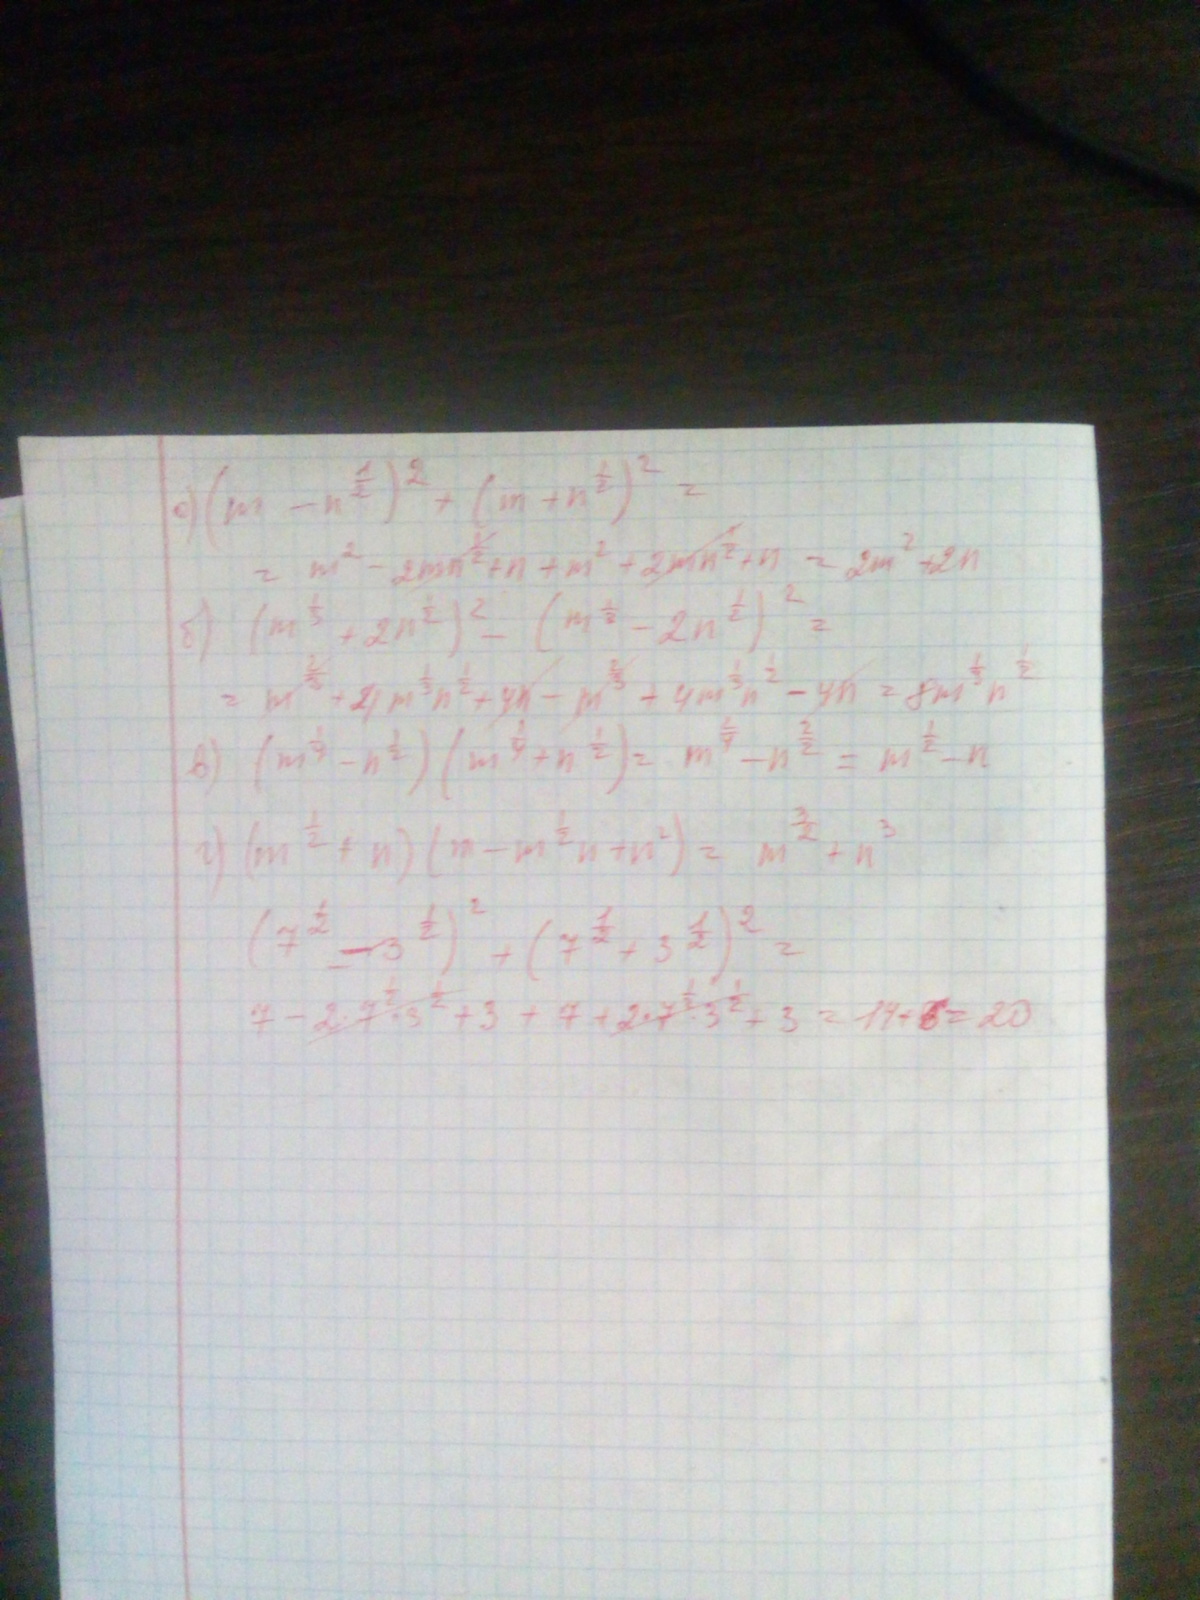 а) (m - n^{1/2})^2 + (m + n^{1/2})^2 =
= m^2 - 2mn^{1/2} + n + m^2 + 2mn^{1/2} + n = 2m^2 + 2n
б) (m^{1/3} + 2n^{1/2})^2 - (m^{1/3} - 2n^{1/2})^2 =
= m^{2/3} + 4m^{1/3}n^{1/2} + 4n - m^{2/3} + 4m^{1/3}n^{1/2} - 4n = 8m^{1/3}n^{1/2}
в) (m^{1/4} - n^{1/2})(m^{1/4} + n^{1/2}) = m^{2/4} - n^{2/2} = m^{1/2} - n
г) (m^{1/2} + n)(m - m^{1/2}n + n^2) = m^{3/2} + n^3
(7^{1/2} - 3^{1/2})^2 + (7^{1/2} + 3^{1/2})^2 =
7 - 2·7^{1/2}·3^{1/2} + 3 + 7 + 2·7^{1/2}·3^{1/2} + 3 = 14 + 6 = 20